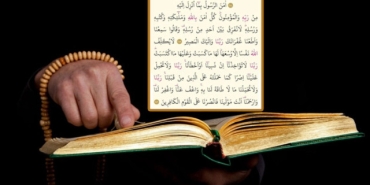 اٰمَنَ الرَّسُولُ بِمَٓا اُنْزِلَ اِلَيْهِ
مِنْ رَبِّهِ وَالْمُؤْمِنُونَۜ كُلٌّ اٰمَنَ بِاللّٰهِ وَمَلٰٓئِكَتِهِ وَكُتُبِهِ
وَرُسُلِهِۜ لَا نُفَرِّقُ بَيْنَ اَحَدٍ مِنْ رُسُلِهِ۠ وَقَالُوا سَمِعْنَا
وَاَطَعْنَا غُفْرَانَكَ رَبَّنَا وَاِلَيْكَ الْمَصِيرُ لَا يُكَلِّفُ
اللّٰهُ نَفْسًا اِلَّا وُسْعَهَاۜ لَهَا مَا كَسَبَتْ وَعَلَيْهَا مَا اكْتَسَبَتْۜ
رَبَّنَا لَا تُؤَاخِذْنَٓا اِنْ نَسِينَٓا اَوْ اَخْطَأْنَاۚ رَبَّنَا وَلَا تَحْمِلْ
عَلَيْنَٓا اِصْرًا كَمَا حَمَلْتَهُ عَلَى الَّذِينَ مِنْ قَبْلِنَاۚ رَبَّنَا
وَلَا تُحَمِّلْنَا مَا لَا طَاقَةَ لَنَا بِهِۚ وَاعْفُ عَنَّا۠ وَاغْفِرْ لَنَا۠
وَارْحَمْنَا۠ اَنْتَ مَوْلٰينَا فَانْصُرْنَا عَلَى الْقَوْمِ الْكَافِرِينَ